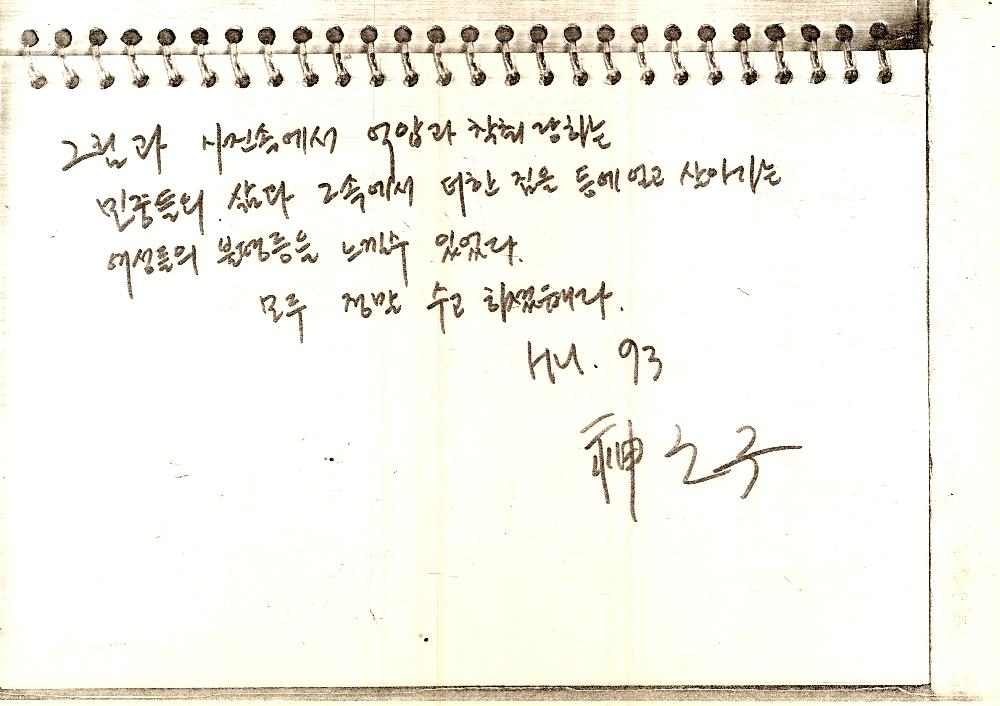 그림과 사진속에서 억압과 착취 당하는
민중들의 삶과 그속에서 더한 짐을 등에 업고 살아가는
여성들의 불평등을 느낄수 있었다.
모두 정말 수고 하셨읍니다.
93
神